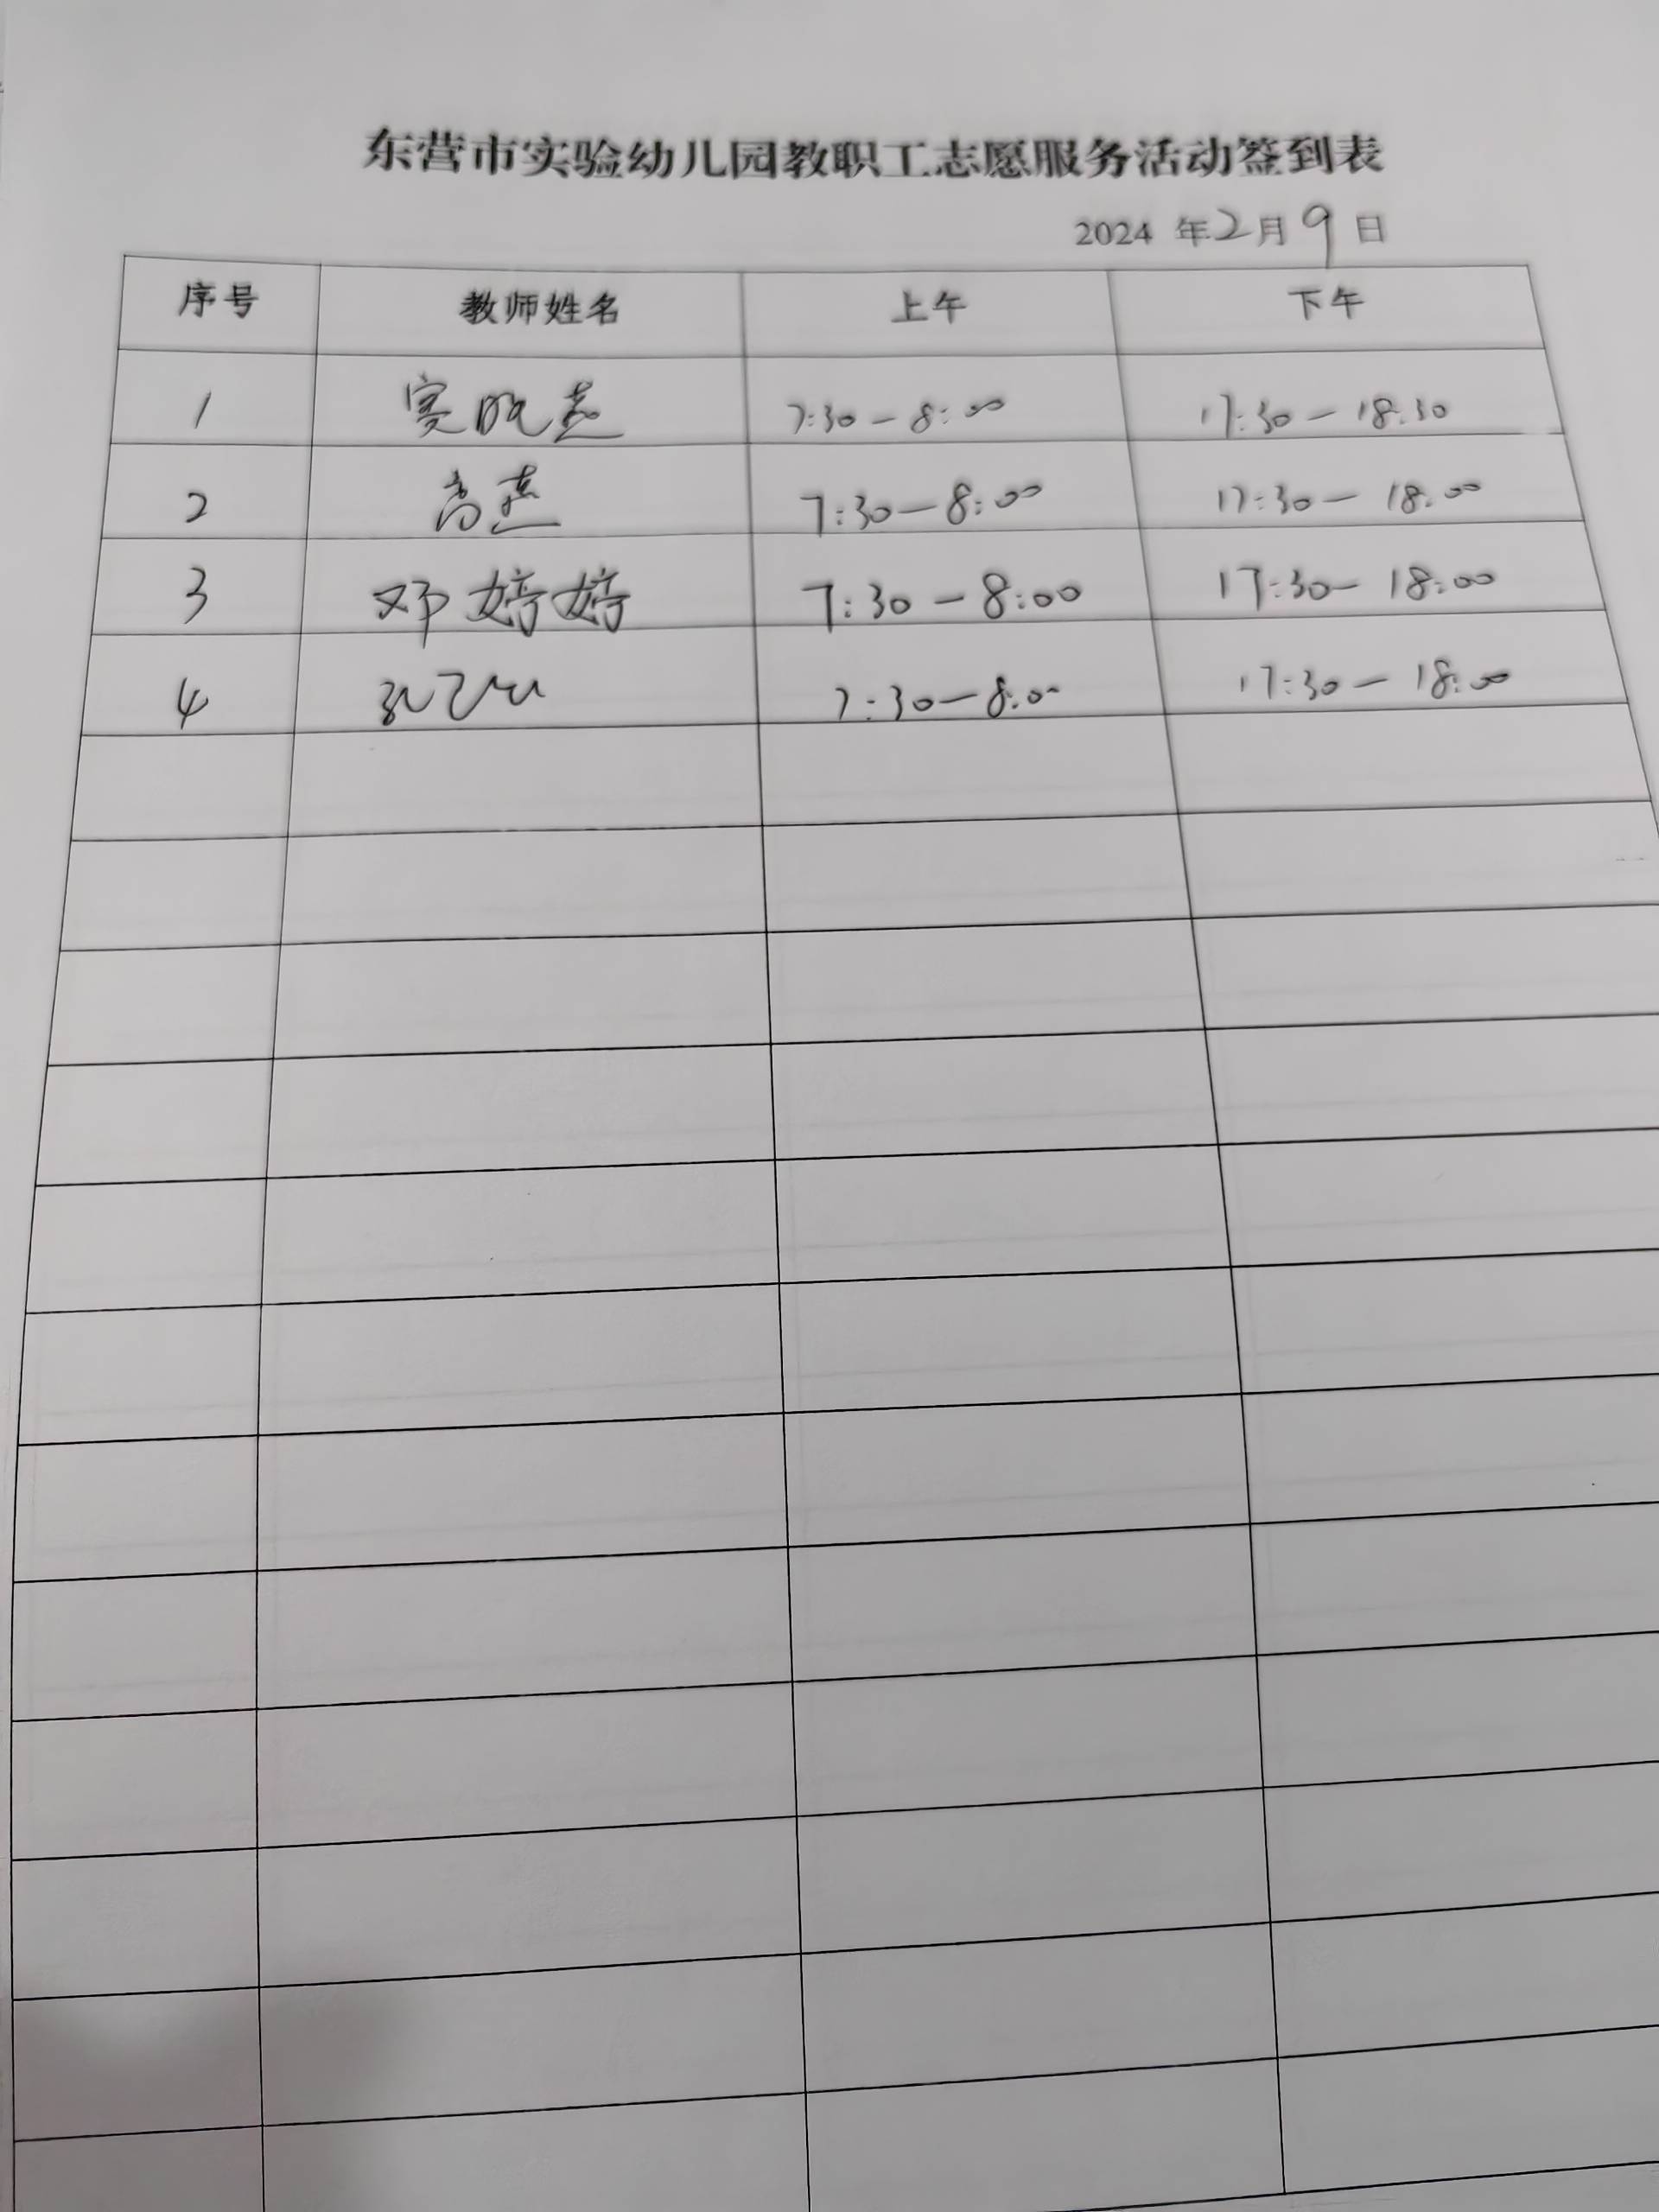 东营市实验幼儿园教职工志愿服务活动签到表
2024 年2月9日
序号 教师姓名 上午 下午
1 7:30-8:00 17:30-18:30
2 高燕 7:30-8:00 17:30-18:00
3 邓婷婷 7:30-8:00 17:30-18:00
4 7:30-8:00 17:30-18:00